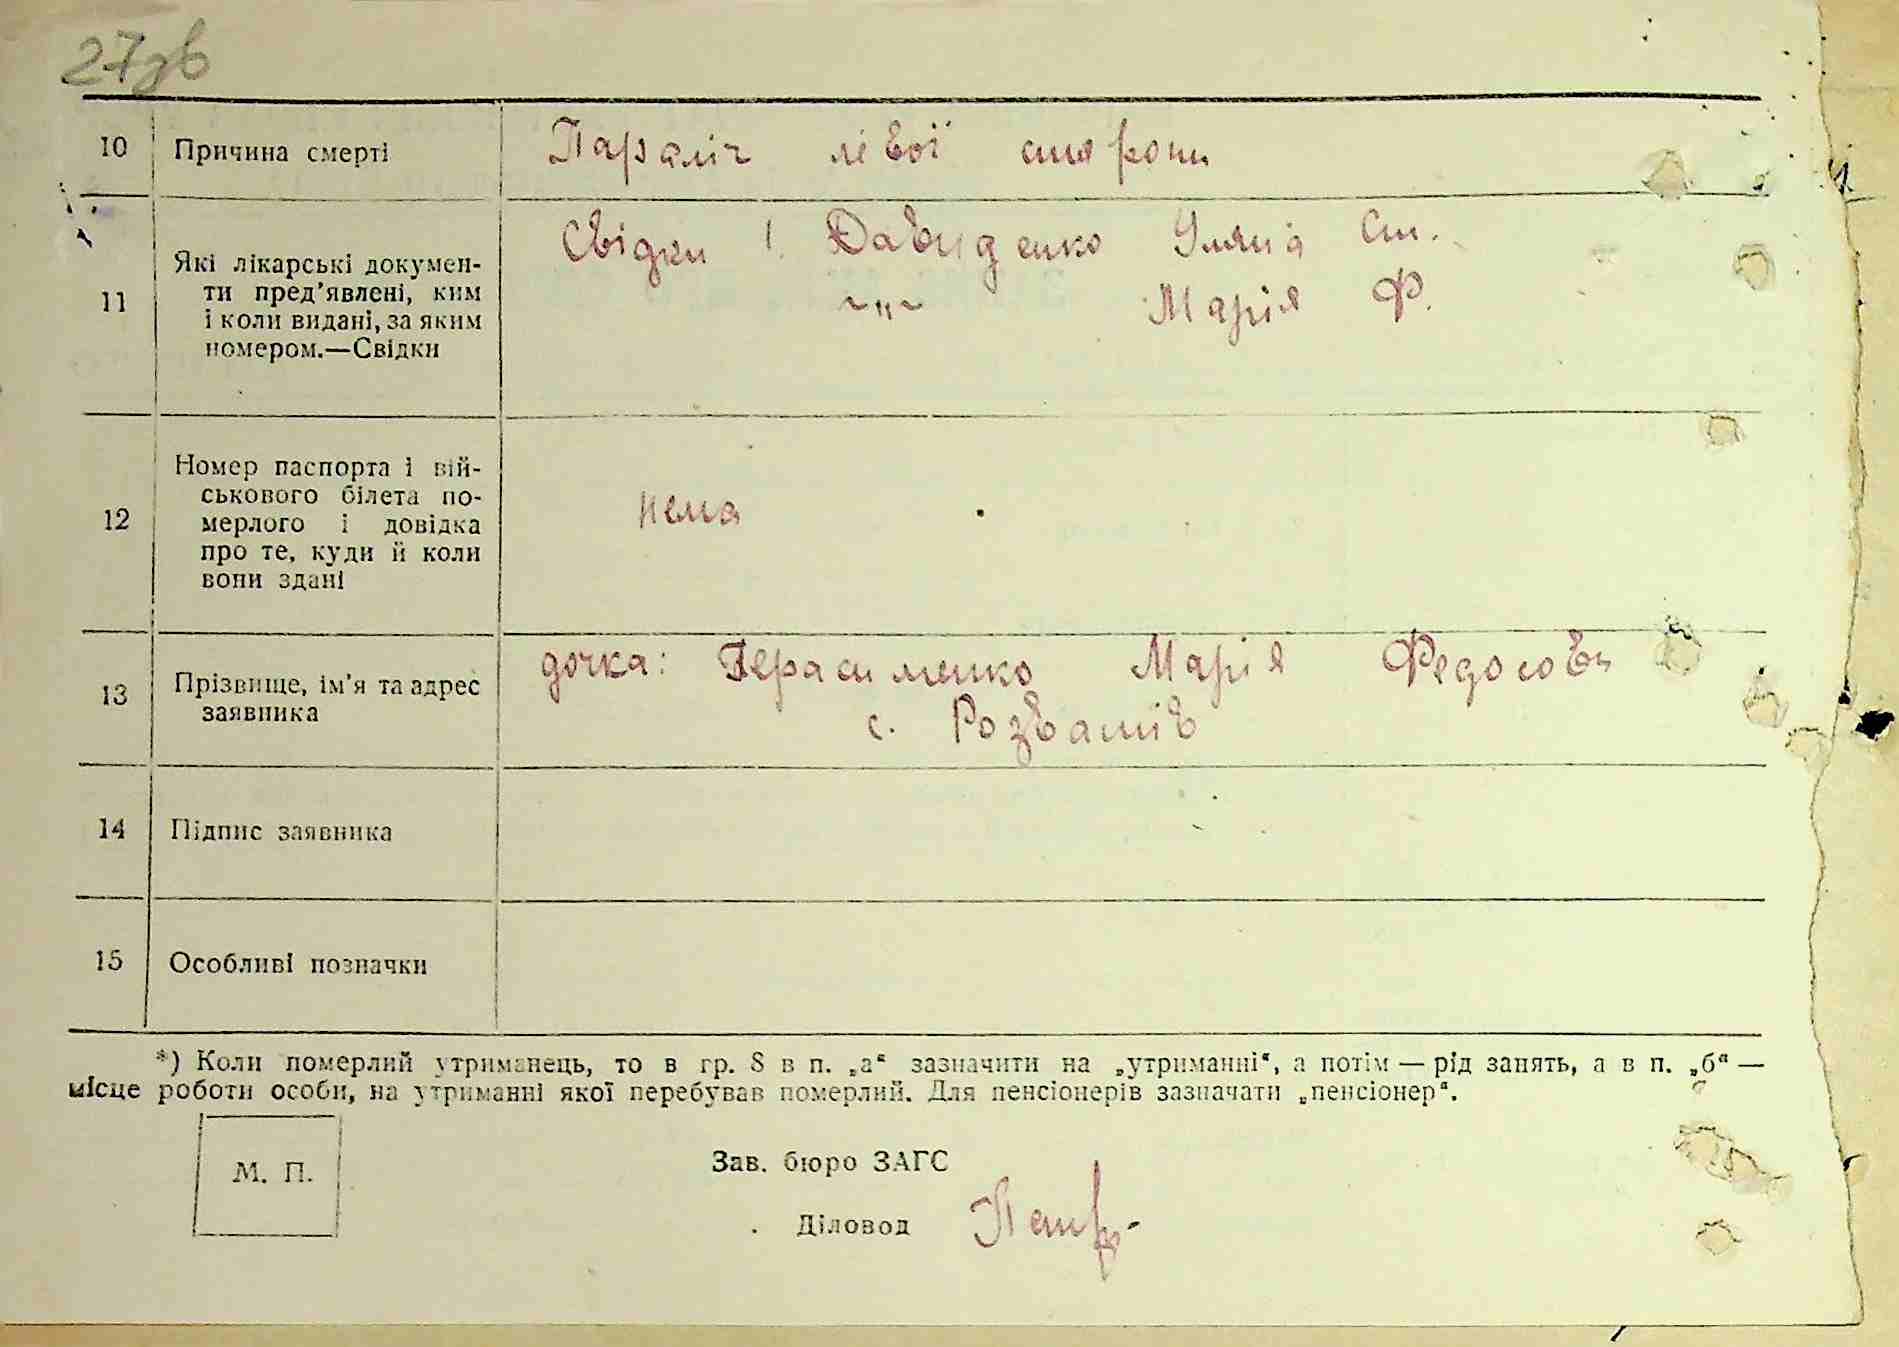 27зв
10 Причина смерті Параліч лівої сторони
11 Які лікарські докумен-
ти пред’явлені, ким
і коли видані, за яким
номером.—Свідки
Свідки: Давиденко Уляна Ст.
~"~ Марія Ф.
12 Номер паспорта і вій-
ськового білета по-
мерлого і довідка
про те, куди й коли
вони здані
нема
13 Прізвище, ім’я та адрес
заявника
дочка: Герасименко Марія Федосовн
с. Розважів
14 Підпис заявника
15 Особливі позначки
*) Коли померлий утриманець, то в гр. 8 в п. „а“ зазначити на „утриманні“, а потім — рід занять, а в п. „б“ —
місце роботи особи, на утриманні якої перебував померлий. Для пенсіонерів зазначати „пенсіонер“.
М. П.
Зав. бюро ЗАГС
Діловод